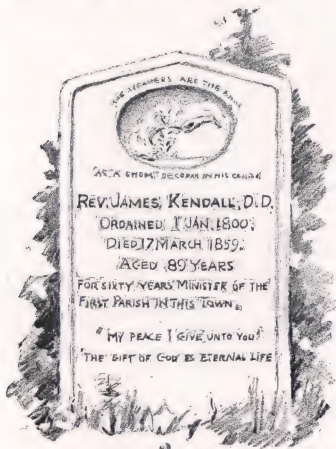 THE REAPERS ARE THE ANGELS
"AS A SHOCK OF CORN IN HIS
REV. JAMES KENDALL, D.D.
ORDAINED 1 JAN. 1800.
DIED 17 MARCH 1859.
AGED 89 YEARS
FOR SIXTY YEARS MINISTER OF THE
FIRST PARISH IN THIS TOWN.
"MY PEACE I GIVE UNTO YOU"
"THE GIFT OF GOD IS ETERNAL LIFE